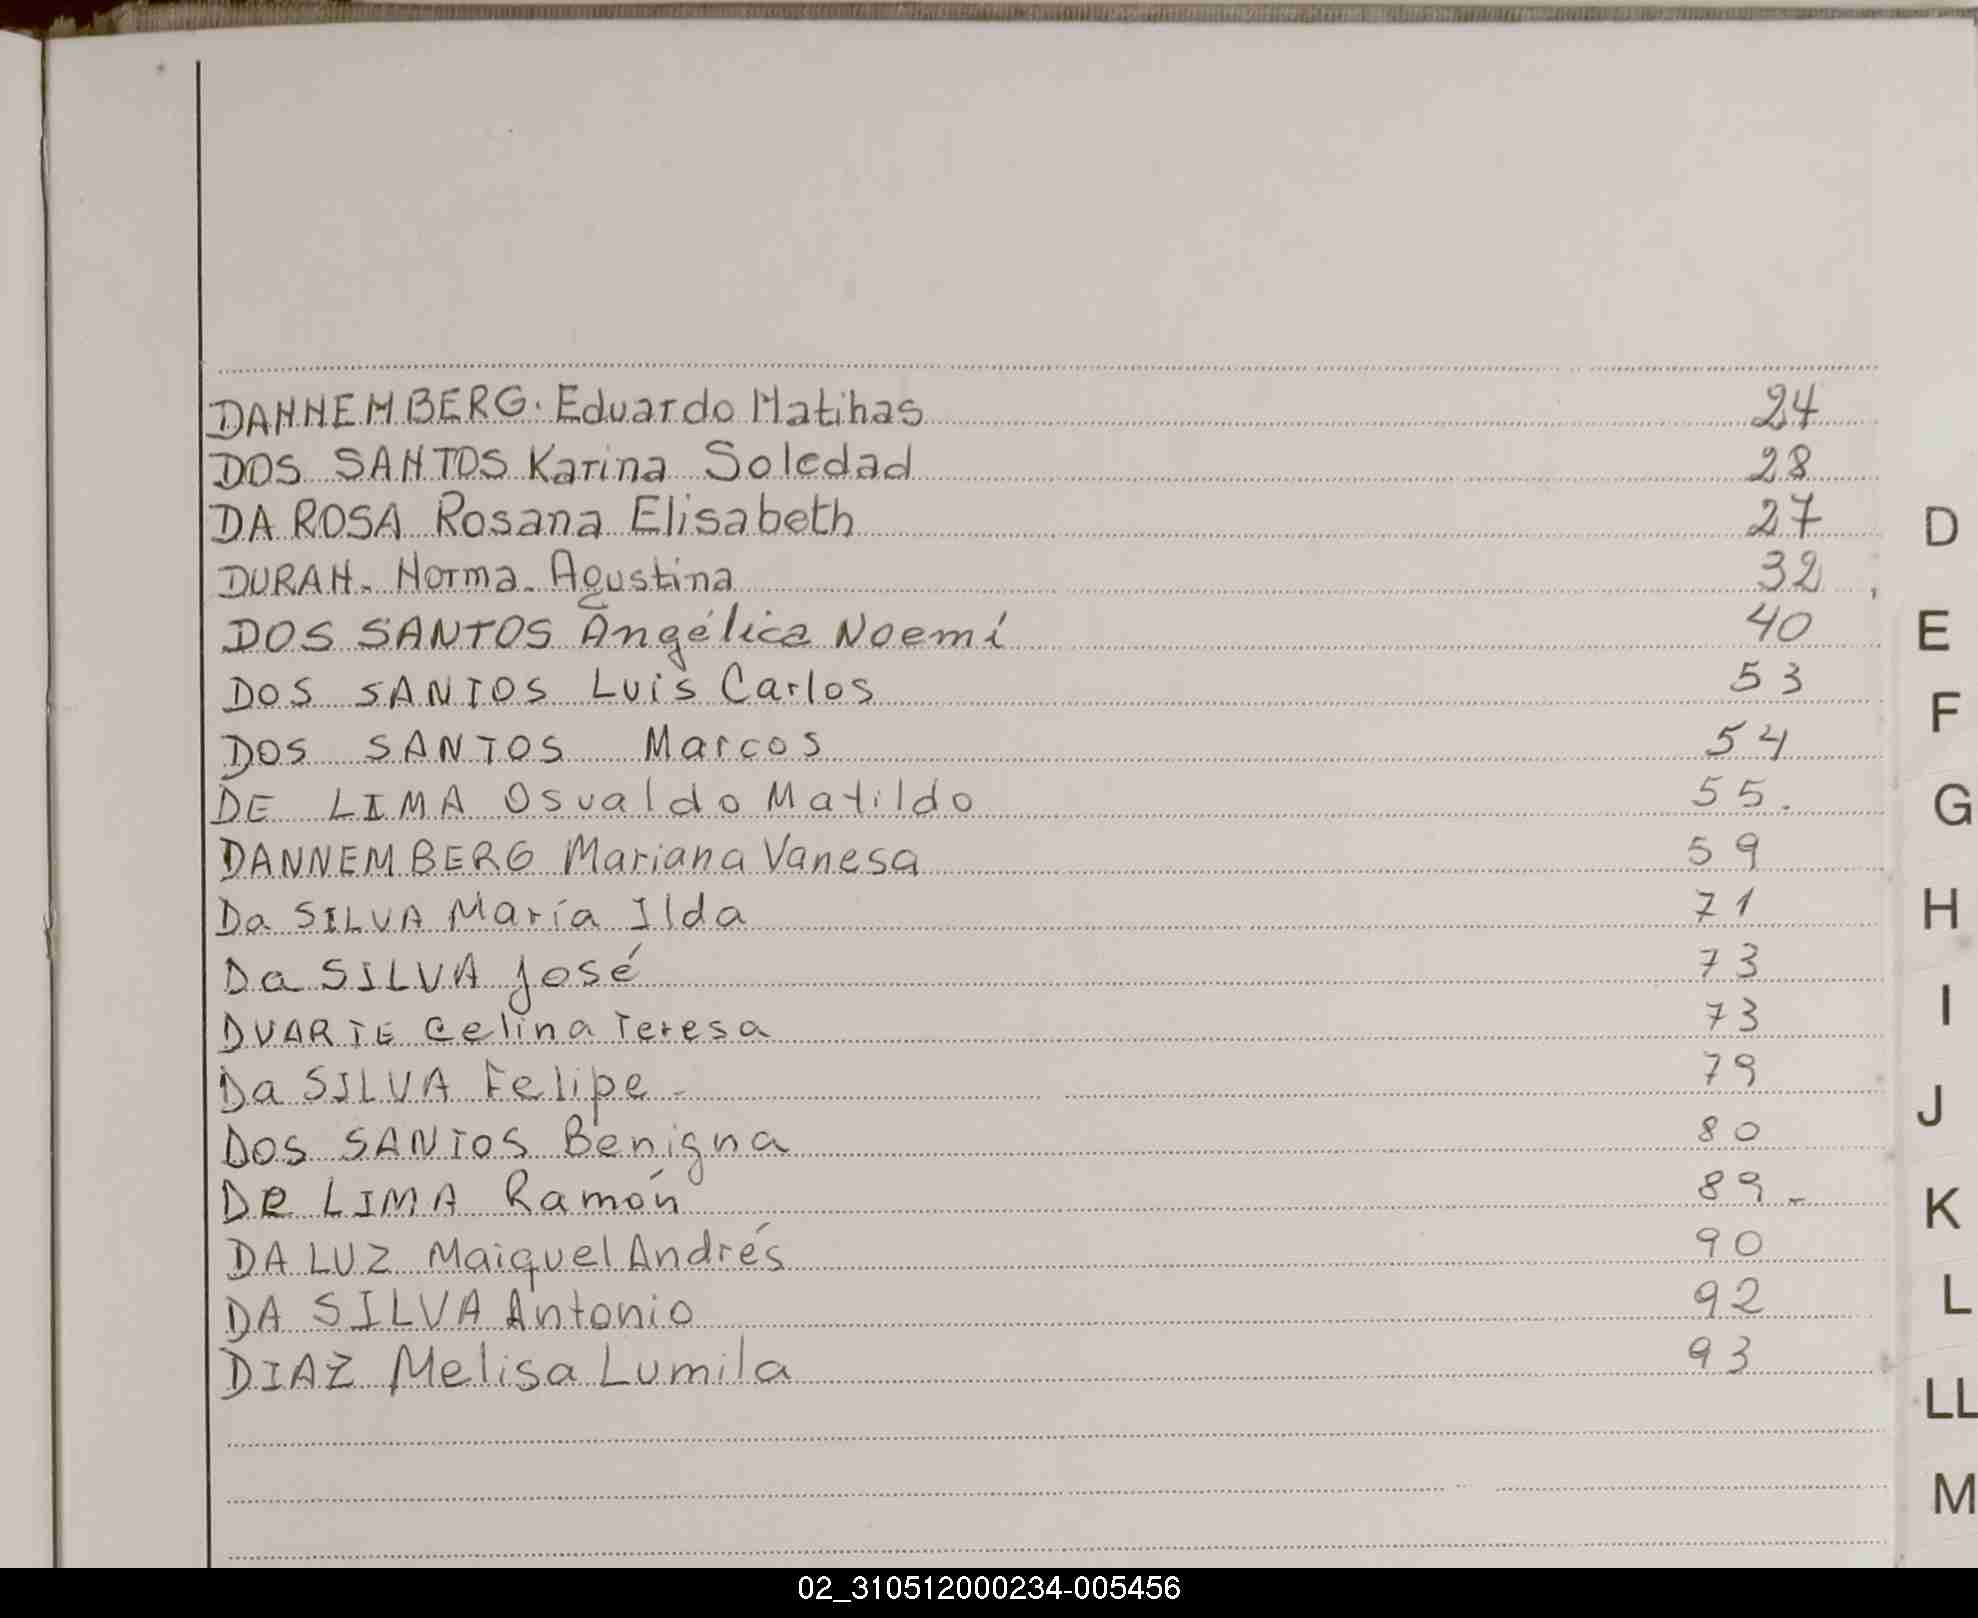 DANNEMBERG. Eduardo Matihas 24
DOS SANTOS Karina Soledad 28
DA ROSA Rosana Elisabeth 27
DURAN. Norma. Agustina 32
DOS SANTOS Angélica Noemí 40
DOS SANTOS Luis Carlos 53
DOS SANTOS Marcos 54
DE LIMA Osvaldo Matildo 55.
DANNEMBERG Mariana Vanesa 59
Da SILVA María Ilda 71
Da SILVA José 73
DUARTE Celina Teresa 73
Da SILVA Felipe - 79
DOS SANTOS Benigna 80
De LIMA Ramón 89-
DA LUZ Maiquel Andrés 90
DA SILVA Antonio 92
DIAZ Melisa Lumila 93
D
E
F
G
H
I
J
K
L
LL
M
02_310512000234-005456